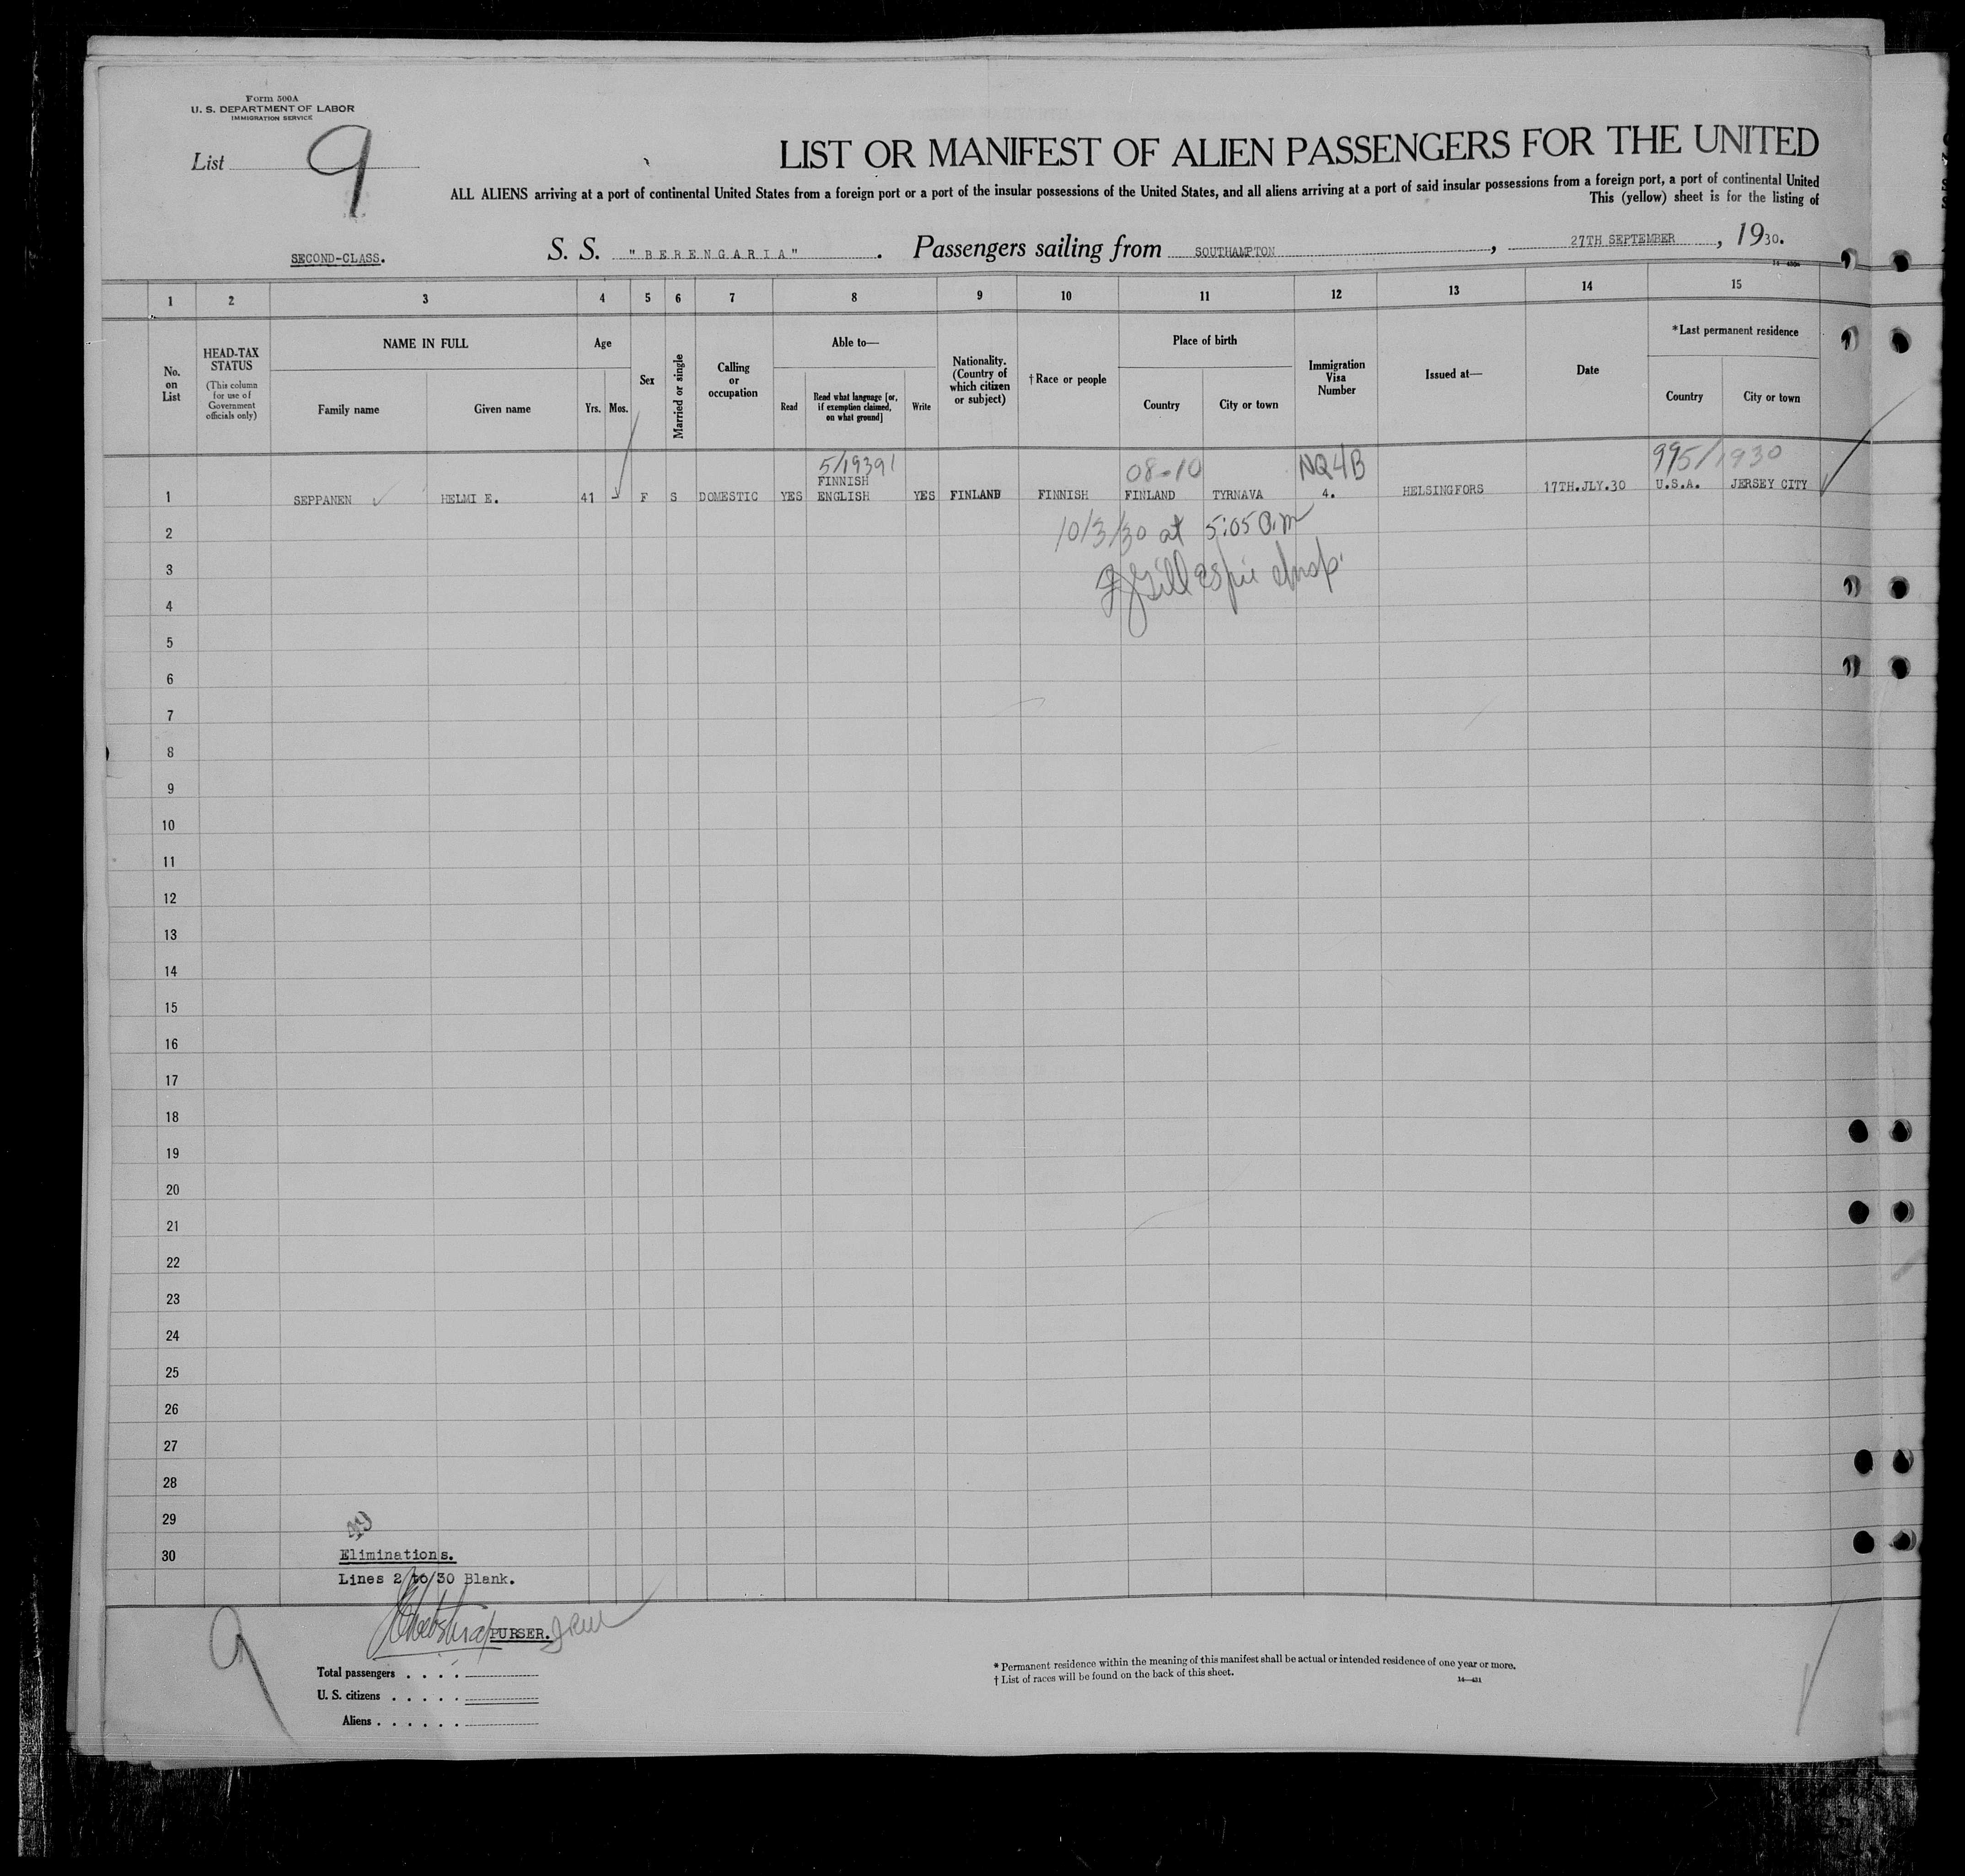 Form 500A
U. S. DEPARTMENT OF LABOR
IMMIGRATION SERVICE
List 9
LIST OR MANIFEST OF ALIEN PASSENGERS FOR THE UNITED
ALL ALIENS arriving at a port of continental United States from a foreign port or a port of the insular possessions of the United States, and all aliens arriving at a port of said insular possessions from a foreign port, a port of continental United
This (yellow) sheet is for the listing of
SECOND-CLASS. S. S. "BERENGARIA". Passengers sailing from SOUTHAMPTON, 27TH SEPTEMBER, 1930.
1 2 3 4 5 6 7 8 9 10 11 12 13 14 15
No. on List
HEAD-TAX STATUS
(This column for use of Government officials only)
NAME IN FULL
Family name Given name
Age
Yrs. Mos.
Sex
Married or single
Calling or occupation
Able to—
Read
Read what language [or, if exemption claimed, on what ground]
Write
Nationality. (Country of which citizen or subject)
†Race or people
Place of birth
Country City or town
Immigration Visa Number
Issued at—
Date
*Last permanent residence
Country City or town
5/19391 08-10 NQ4B 995/1930
FINNISH
1 SEPPANEN HELMI E. 41 F S DOMESTIC YES ENGLISH YES FINLAND FINNISH FINLAND TYRNAVA 4. HELSINGFORS 17TH.JLY.30 U.S.A. JERSEY CITY
2 10/3/30 at 5:05 a.m
3 Gillespie Insp.
4
5
6
7
8
9
10
11
12
13
14
15
16
17
18
19
20
21
22
23
24
25
26
27
28
29
30
Eliminations.
Lines 2 to 30 Blank.
PURSER.
9
Total passengers
U. S. citizens
Aliens
* Permanent residence within the meaning of this manifest shall be actual or intended residence of one year or more.
† List of races will be found on the back of this sheet.
14—431